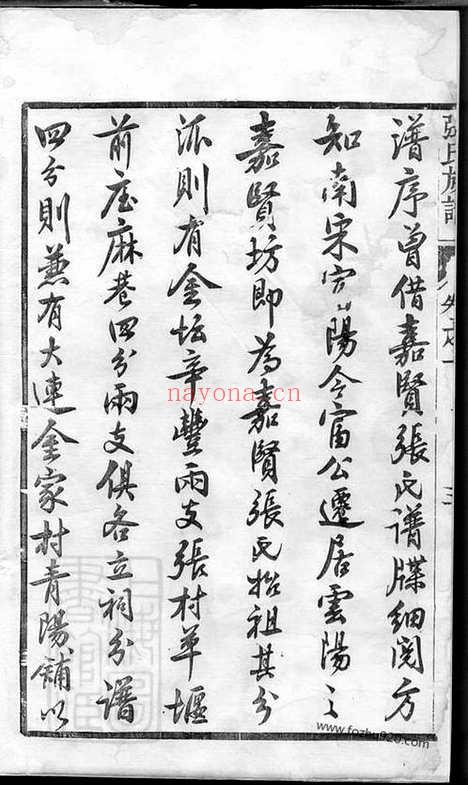 譜序曾借嘉賢張氏譜牒細閱方
知南宋宜陽令甯公遷居雲陽之
嘉賢坊即為嘉賢張氏始祖其分
派則有金坛辛豐兩支張村草堰
前庄麻巷四分兩支俱各立祠分譜
四分則兼有大連金家村青陽舖以
張氏族譜
三
nayona.cn
www.fozhu920.com